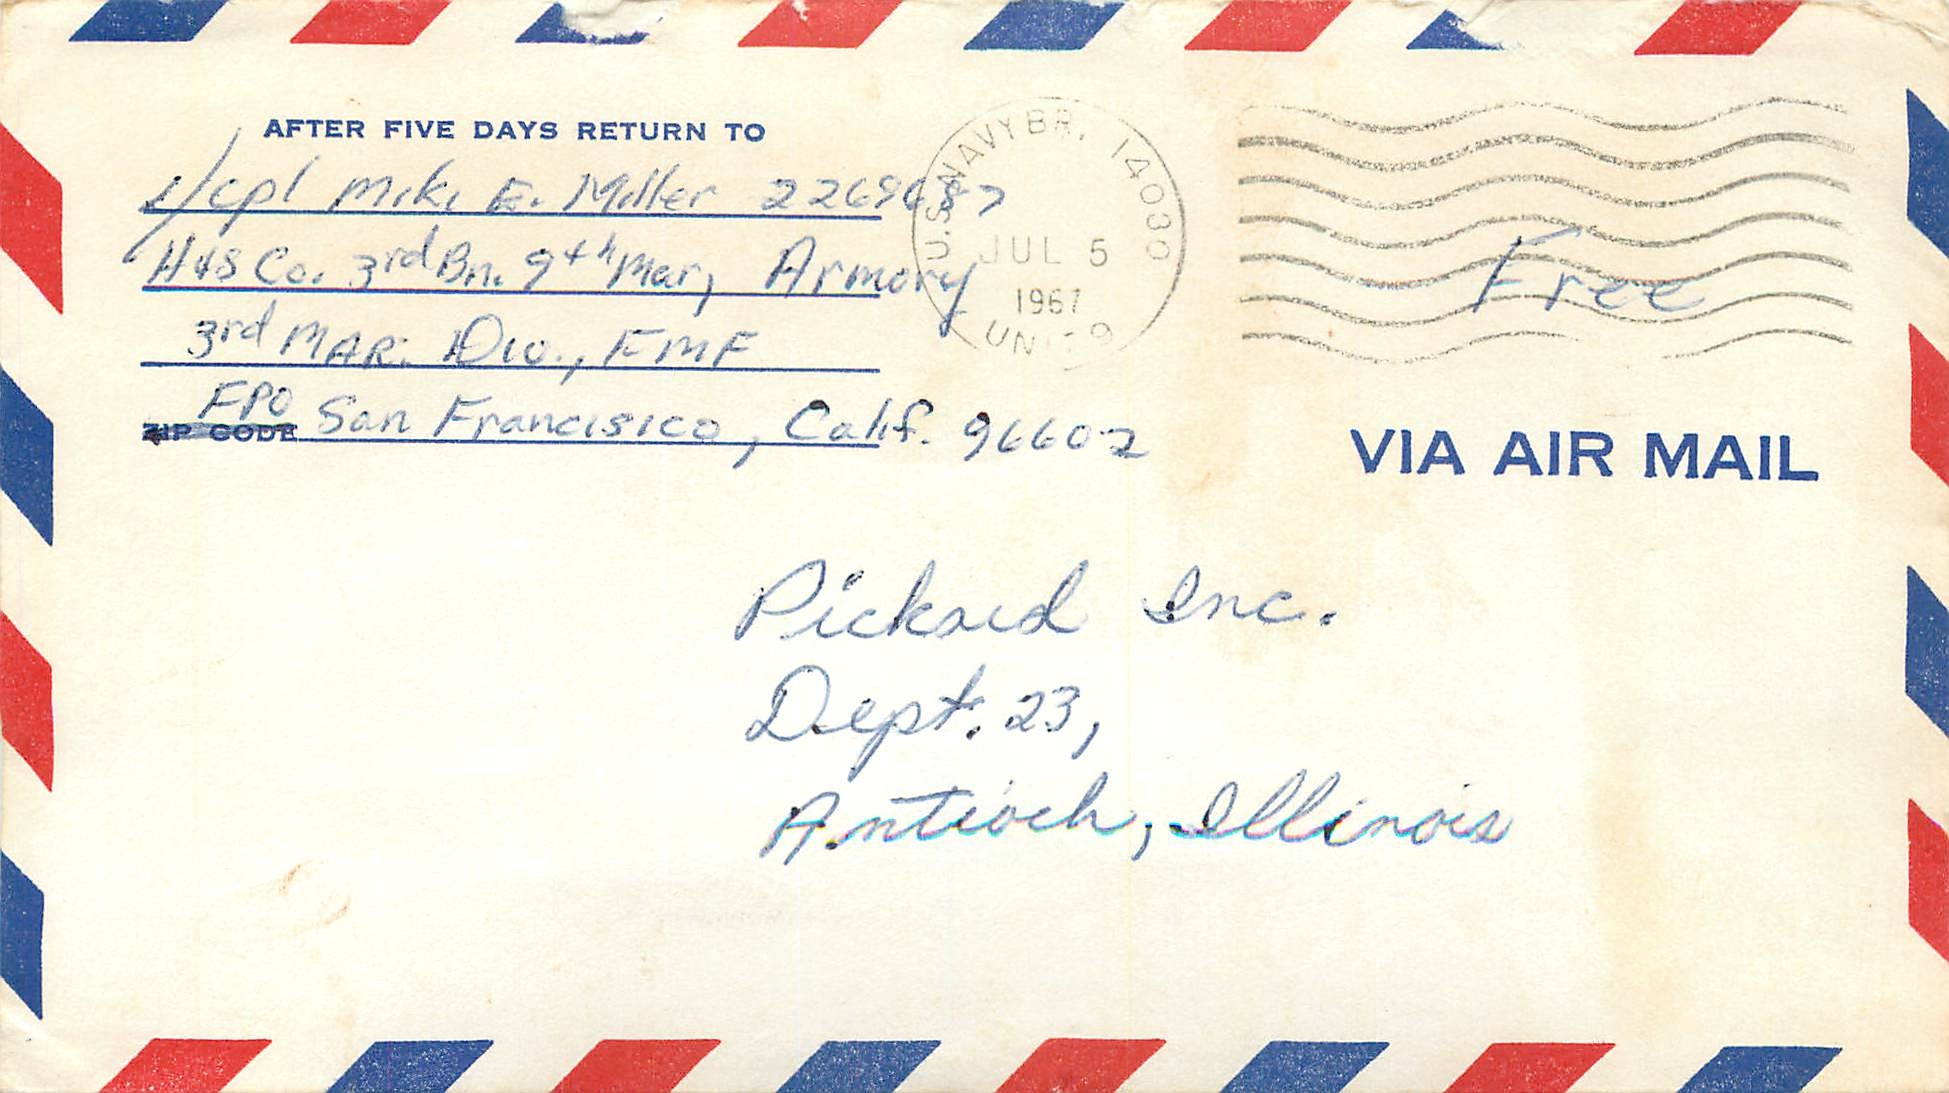 AFTER FIVE DAYS RETURN TO
L/cpl Mike E. Miller
H&S Co. 3rd Bn. 9th Mar, Armory
3rd MAR. Div., FMF
FPO San Francisico, Calif. 96602
ZIP CODE
U.S. NAVY BR. 14030
JUL 5
1967
UNIT
Free
VIA AIR MAIL
Pickard Inc.
Dept. 23,
Antioch, Illinois